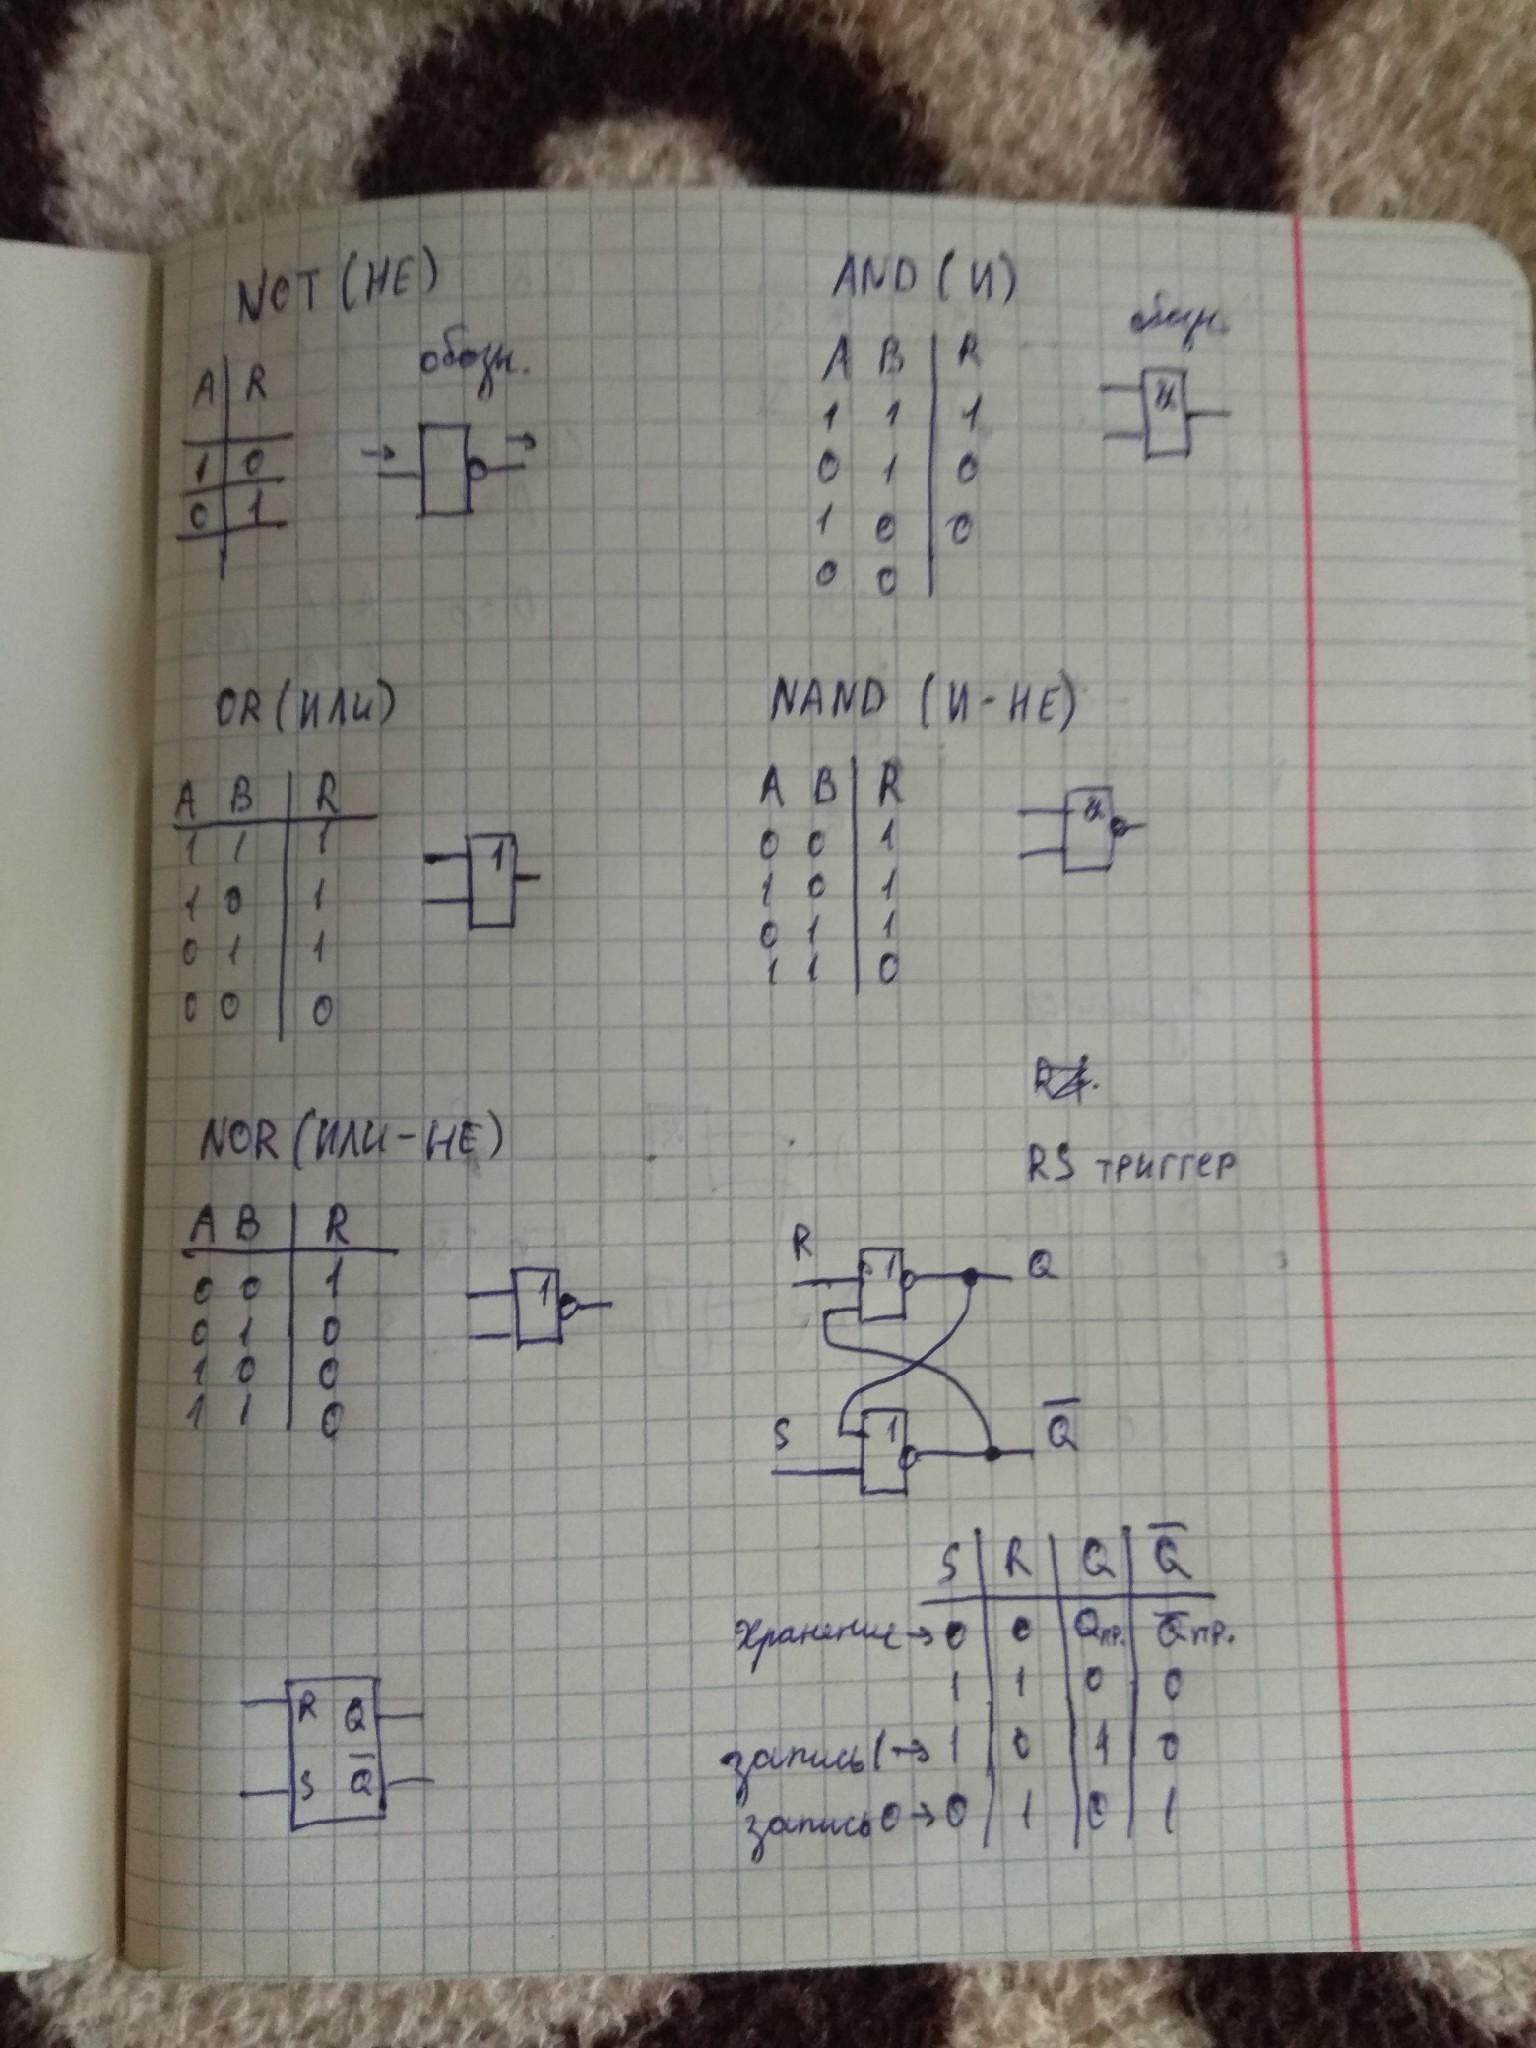 NOT (НЕ)
обозн.
A R
1 0
0 1
AND (И)
обозн.
A B R
1 1 1
0 1 0
1 0 0
0 0
&
OR (ИЛИ)
A B R
1 1 1
1 0 1
0 1 1
0 0 0
1
NAND (И-НЕ)
A B R
0 0 1
1 0 1
0 1 1
1 1 0
&
NOR (ИЛИ-НЕ)
A B R
0 0 1
0 1 0
1 0 0
1 1 0
1
RS триггер
R 1 Q
S 1 Q̅
S R Q Q̅
Хранение → 0 0 Qпр. Q̅пр.
1 1 0 0
запись 1 → 1 0 1 0
запись 0 → 0 1 0 1
R Q
S Q̅